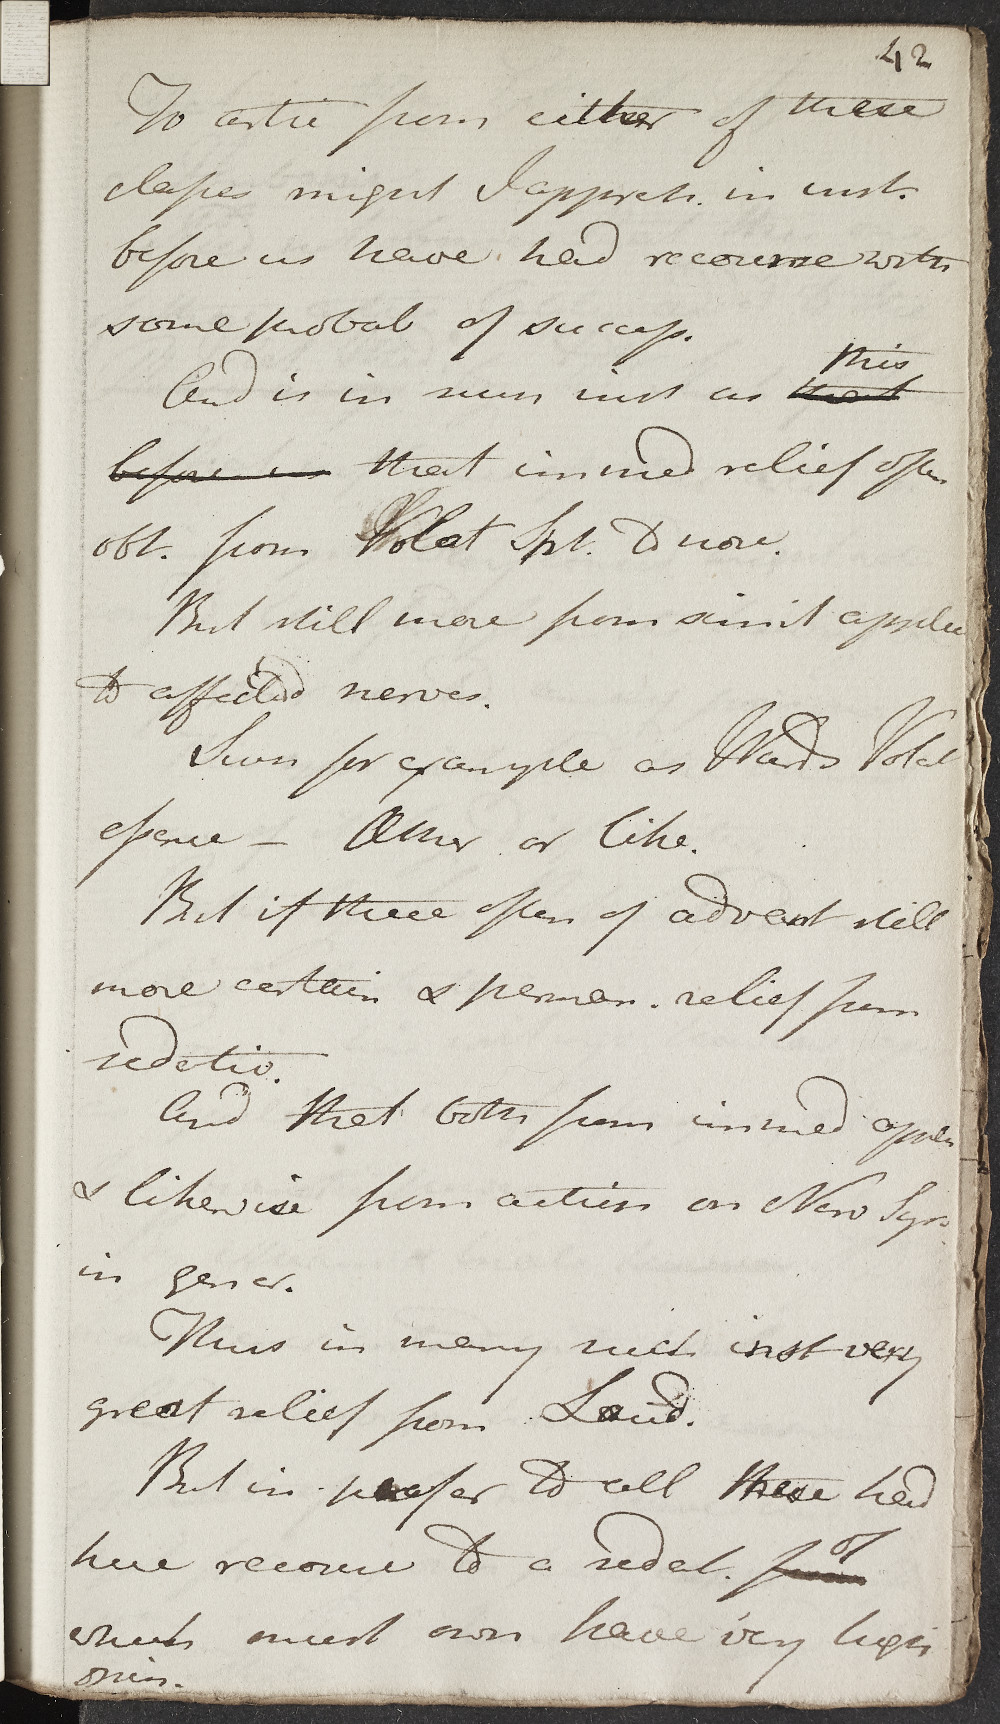 42
To artic from either of these
classes might I appreh. in inst.
before us have had recourse with
some probab of success.
And is in num inst as this that
before us that immed relief often
obt. from Volat Spt. to nose.
But still more from simil applic
to affected nerves.
Such for example as Wards Volat
essence - Æther or like.
But if these often of advant still
more certain & perman. relief from
sedativ.
And that both from immed applic
& likewise from action on Nerv Sys
in gener.
Thus in many such inst very
great relief from Laud.
But in prefer to all these had
here recourse to a sedat. from of
which must own have very high
opin.